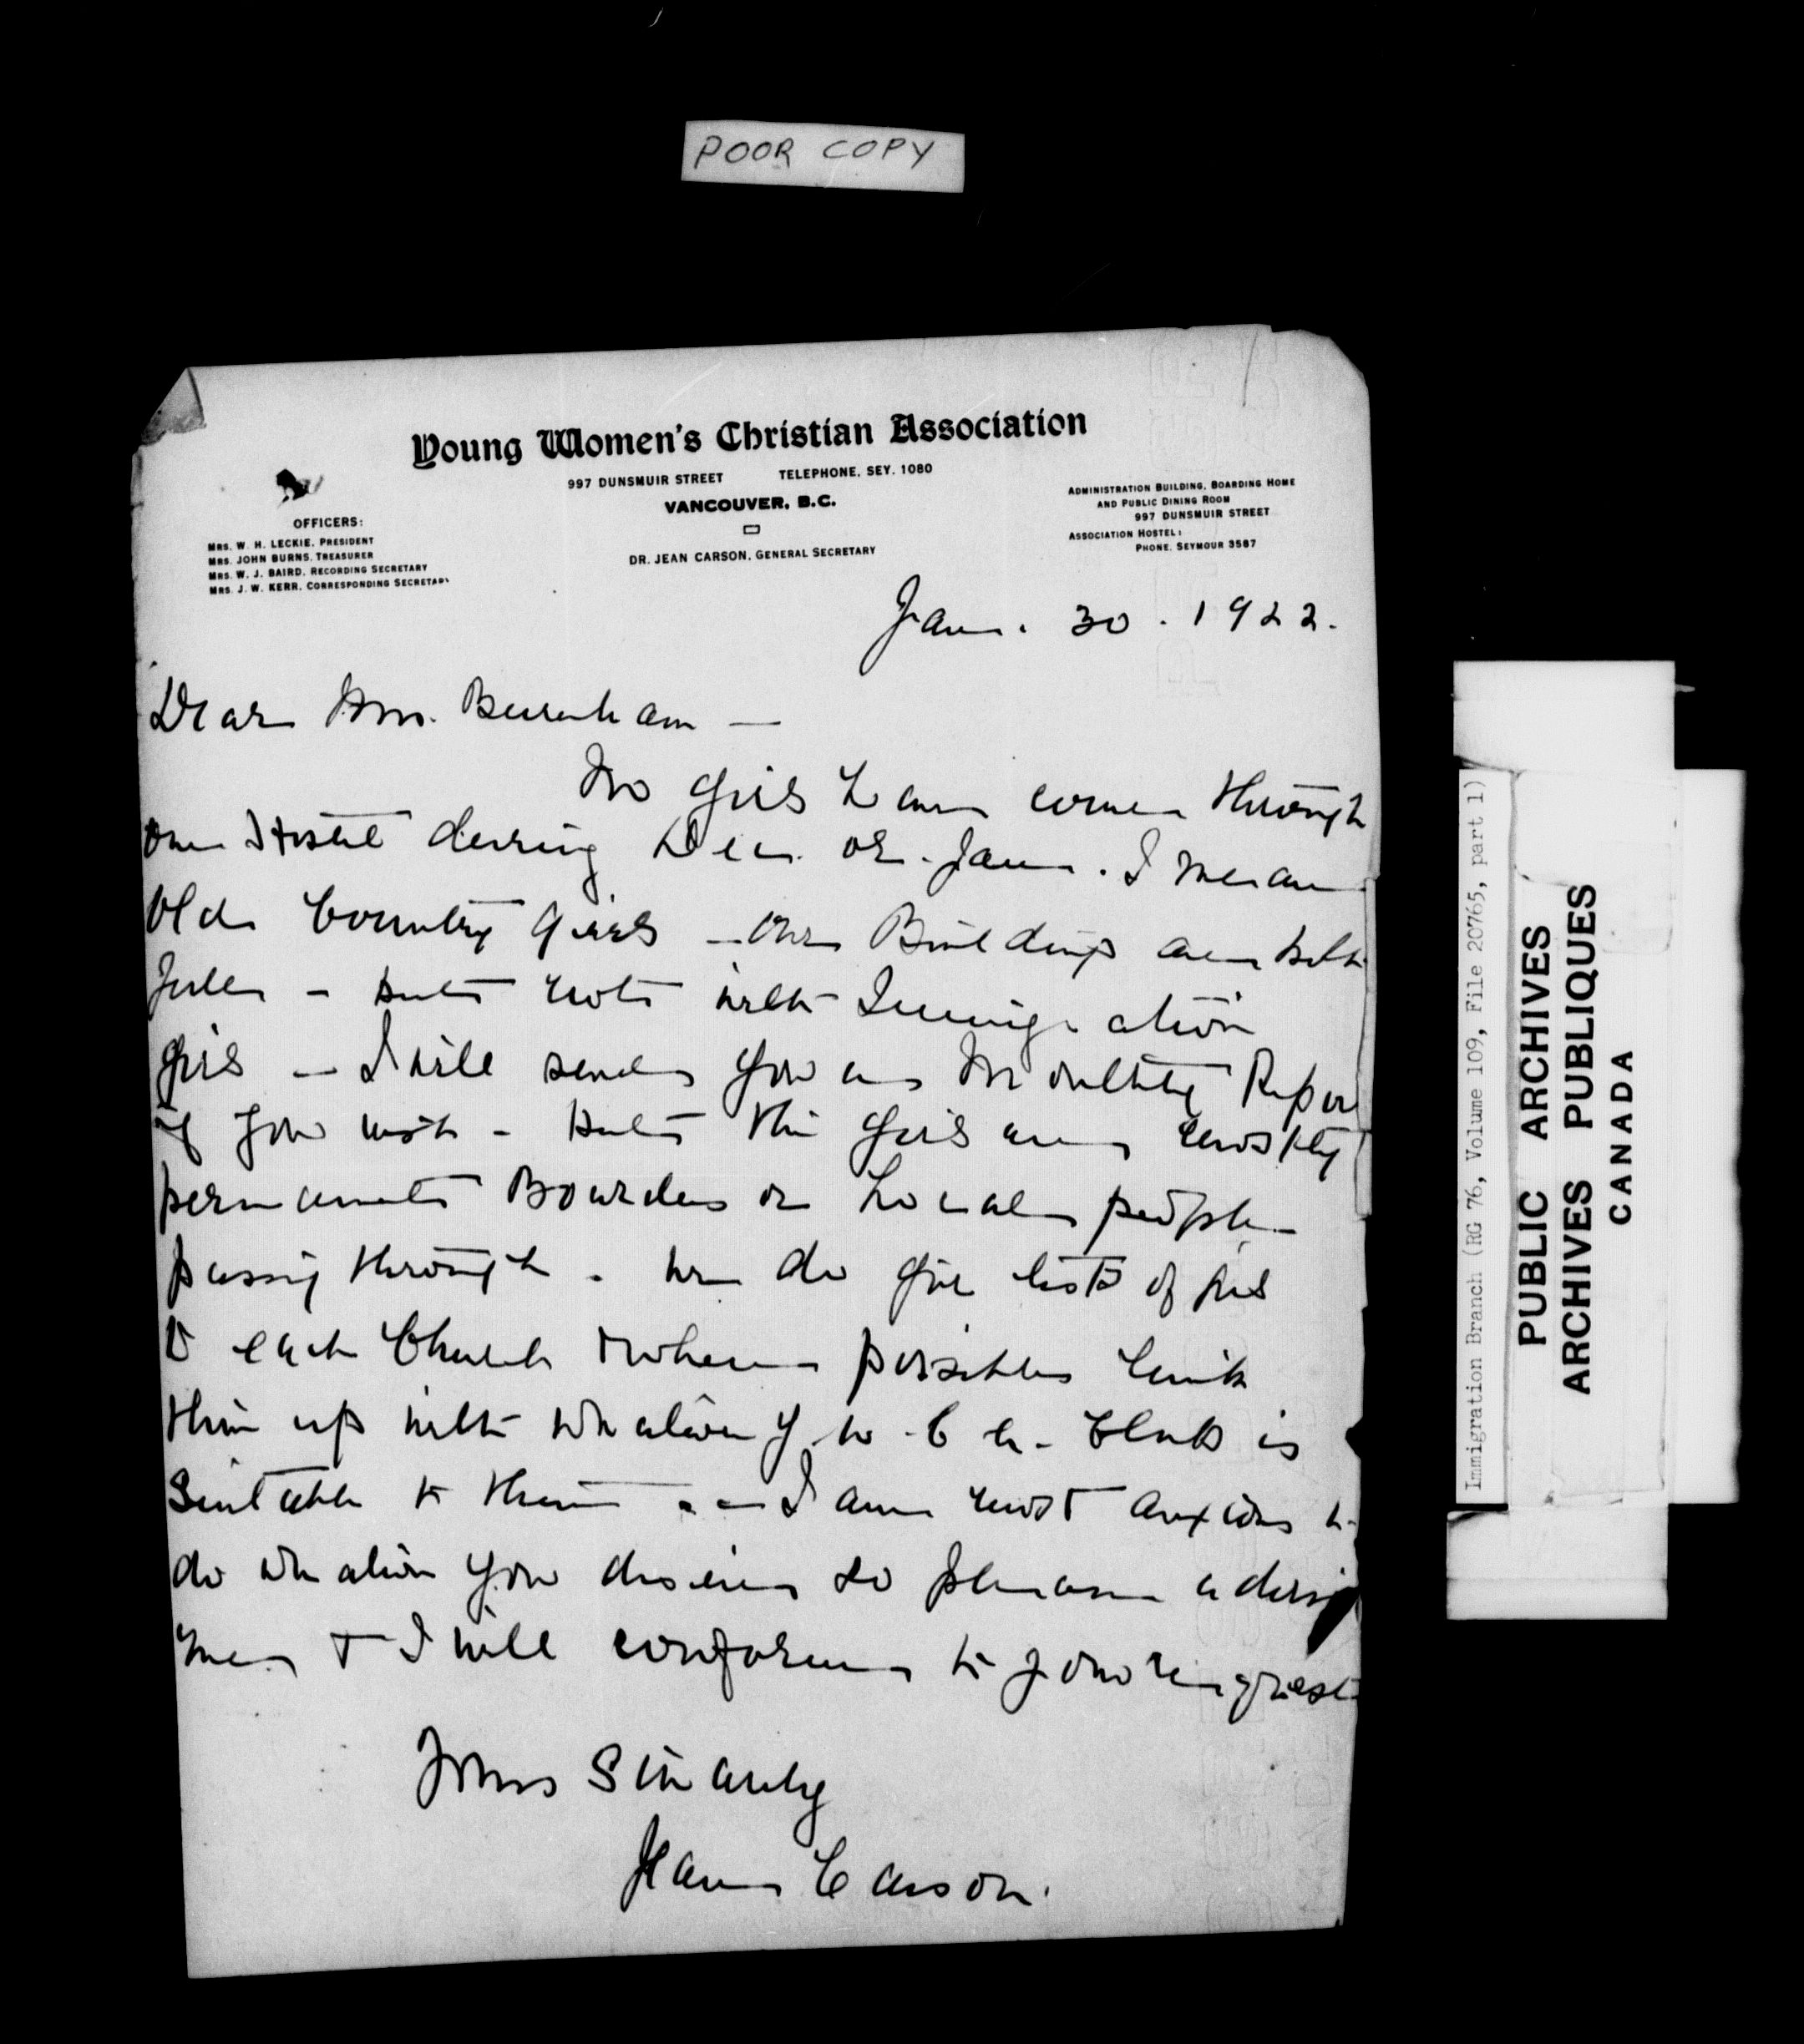 POOR COPY
Young Women's Christian Association
997 DUNSMUIR STREET TELEPHONE, SEY. 1080
VANCOUVER, B.C.
DR. JEAN CARSON, GENERAL SECRETARY
OFFICERS:
MRS. W. H. LECKIE, PRESIDENT
MRS. JOHN BURNS, TREASURER
MRS. W. J. BAIRD, RECORDING SECRETARY
MRS. J. W. KERR, CORRESPONDING SECRETARY
ADMINISTRATION BUILDING, BOARDING HOME
AND PUBLIC DINING ROOM
997 DUNSMUIR STREET
ASSOCIATION HOSTEL:
PHONE, SEYMOUR 3587
Jan. 30. 1922.
Dear Mrs. Burnham —
No girls have come through
our Hostel during Dec. or Jan. I mean
Old Country girls — our Buildings are both
full — but not with Immigration
girls — I will send you a Monthly Repor
if you wish — but the girls are mostly
permanent Boarders or Local people
passing through. We do give lists of girls
to each Church & where possible link
them up with whatever Y. W. C. A. Club is
suitable to them. — I am most anxious to
do whatever you desire so please advise
me & I will conform to your request
Yours Sincerely
Jean Carson.
Immigration Branch (RG 76, Volume 109, File 20765, part 1)
PUBLIC ARCHIVES
ARCHIVES PUBLIQUES
CANADA